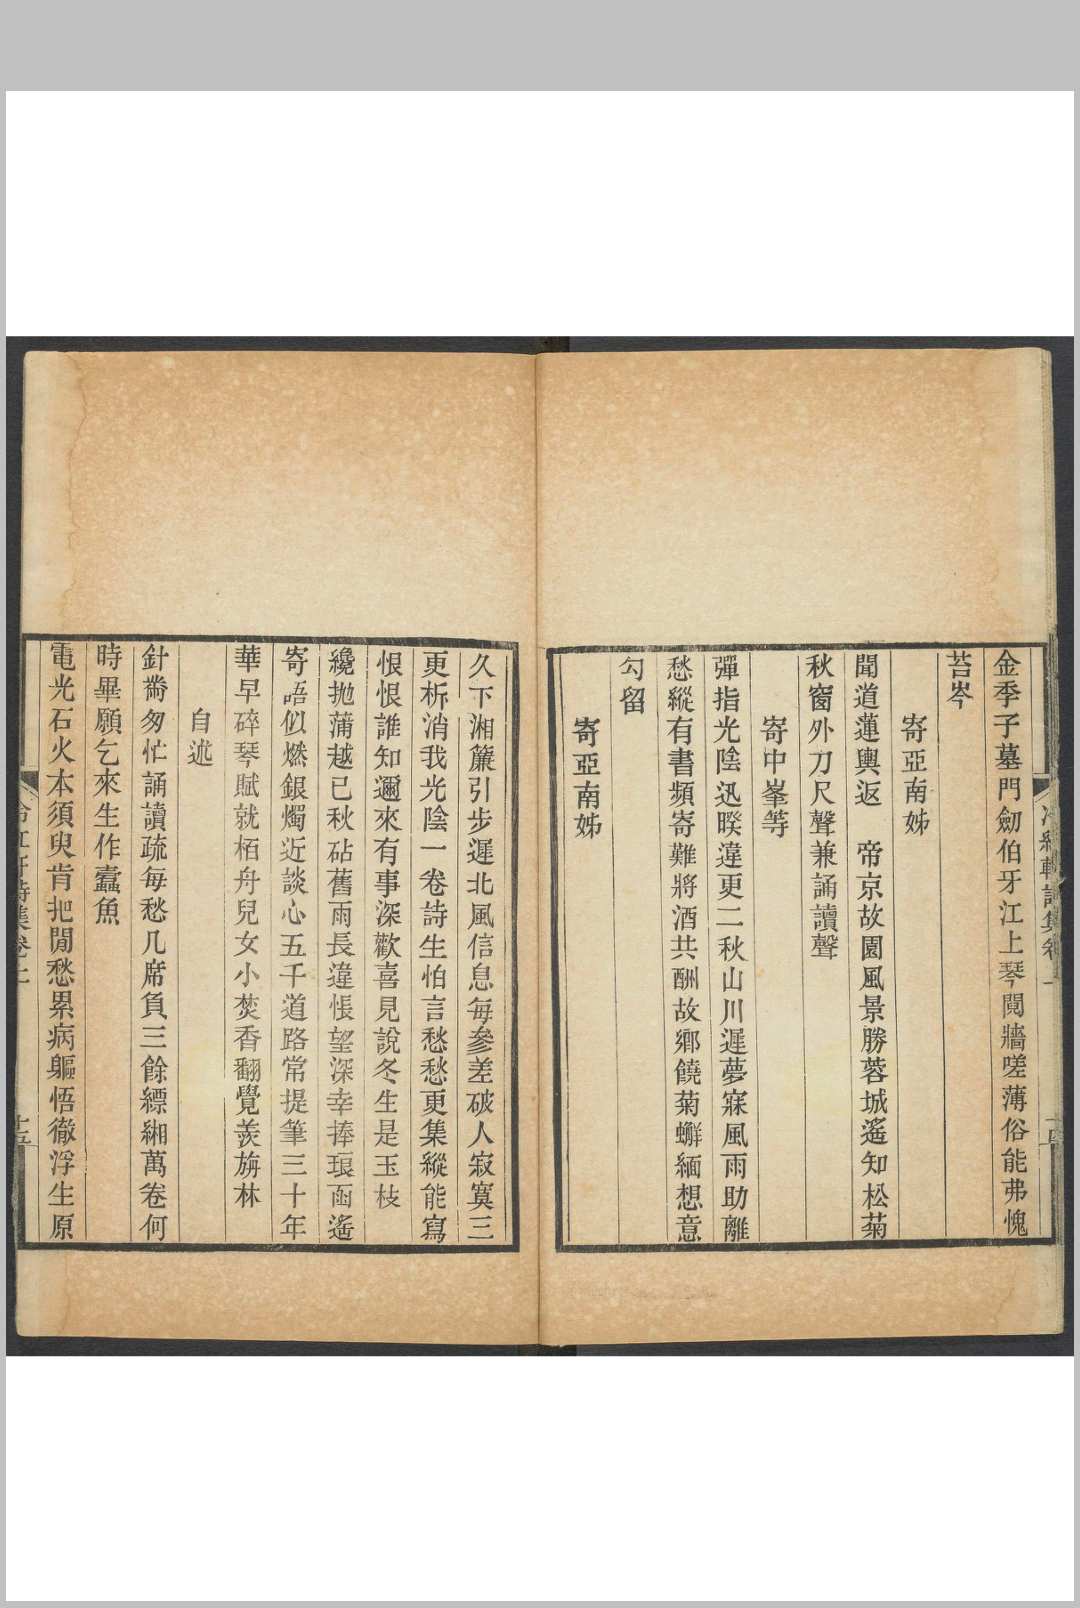 金季子墓門劒伯牙江上琴閱牆嗟薄俗能弗愧
苔岑
寄亞南姊
聞道蓮輿返　帝京故園風景勝蓉城遙知松菊
秋窗外刀尺聲兼誦讀聲
寄中峯等
彈指光陰迅睽違更二秋山川遲夢寐風雨助離
愁縱有書頻寄難將酒共酬故鄉饒菊蠏緬想意
勾留
寄亞南姊
久下湘簾引步遲北風信息每參差破人寂寞三
更柝消我光陰一卷詩生怕言愁愁更集縱能寫
恨恨誰知邇來有事深歡喜見說冬生是玉枝
纔拋蒲越已秋砧舊雨長違悵望深幸捧琅函遙
寄語似燃銀燭近談心五千道路常提筆三十年
華早碎琴賦就栢舟兒女小焚香翻覺羡旃林
自述
針黹匆忙誦讀疏每愁几席負三餘縹緗萬卷何
時畢願乞來生作蠹魚
電光石火本須臾肯把閒愁累病軀悟徹浮生原
詩集卷上
十五